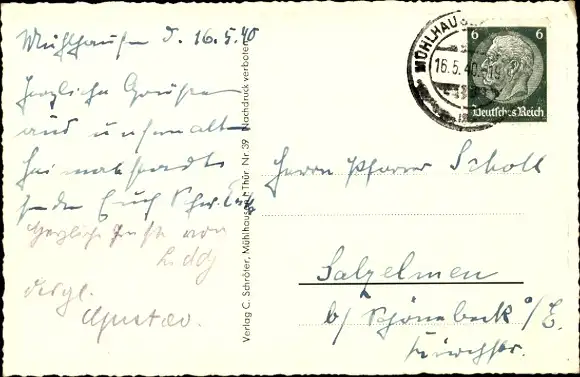 Mühlhausen d. 16.5.40
Herzliche Grüße
aus unserer alten
Heimatstadt
senden Euch
Herzliche Grüße von
dergl.
Gustav.
Verlag C. Schröter, Mühlhausen i. Thür. Nr. 39. Nachdruck verboten
MÜHLHAUSEN
16.5.40
6 6
Deutsches Reich
Herrn Pfarrer Scholl
Salzelmen
b/ Schönebeck a/E.